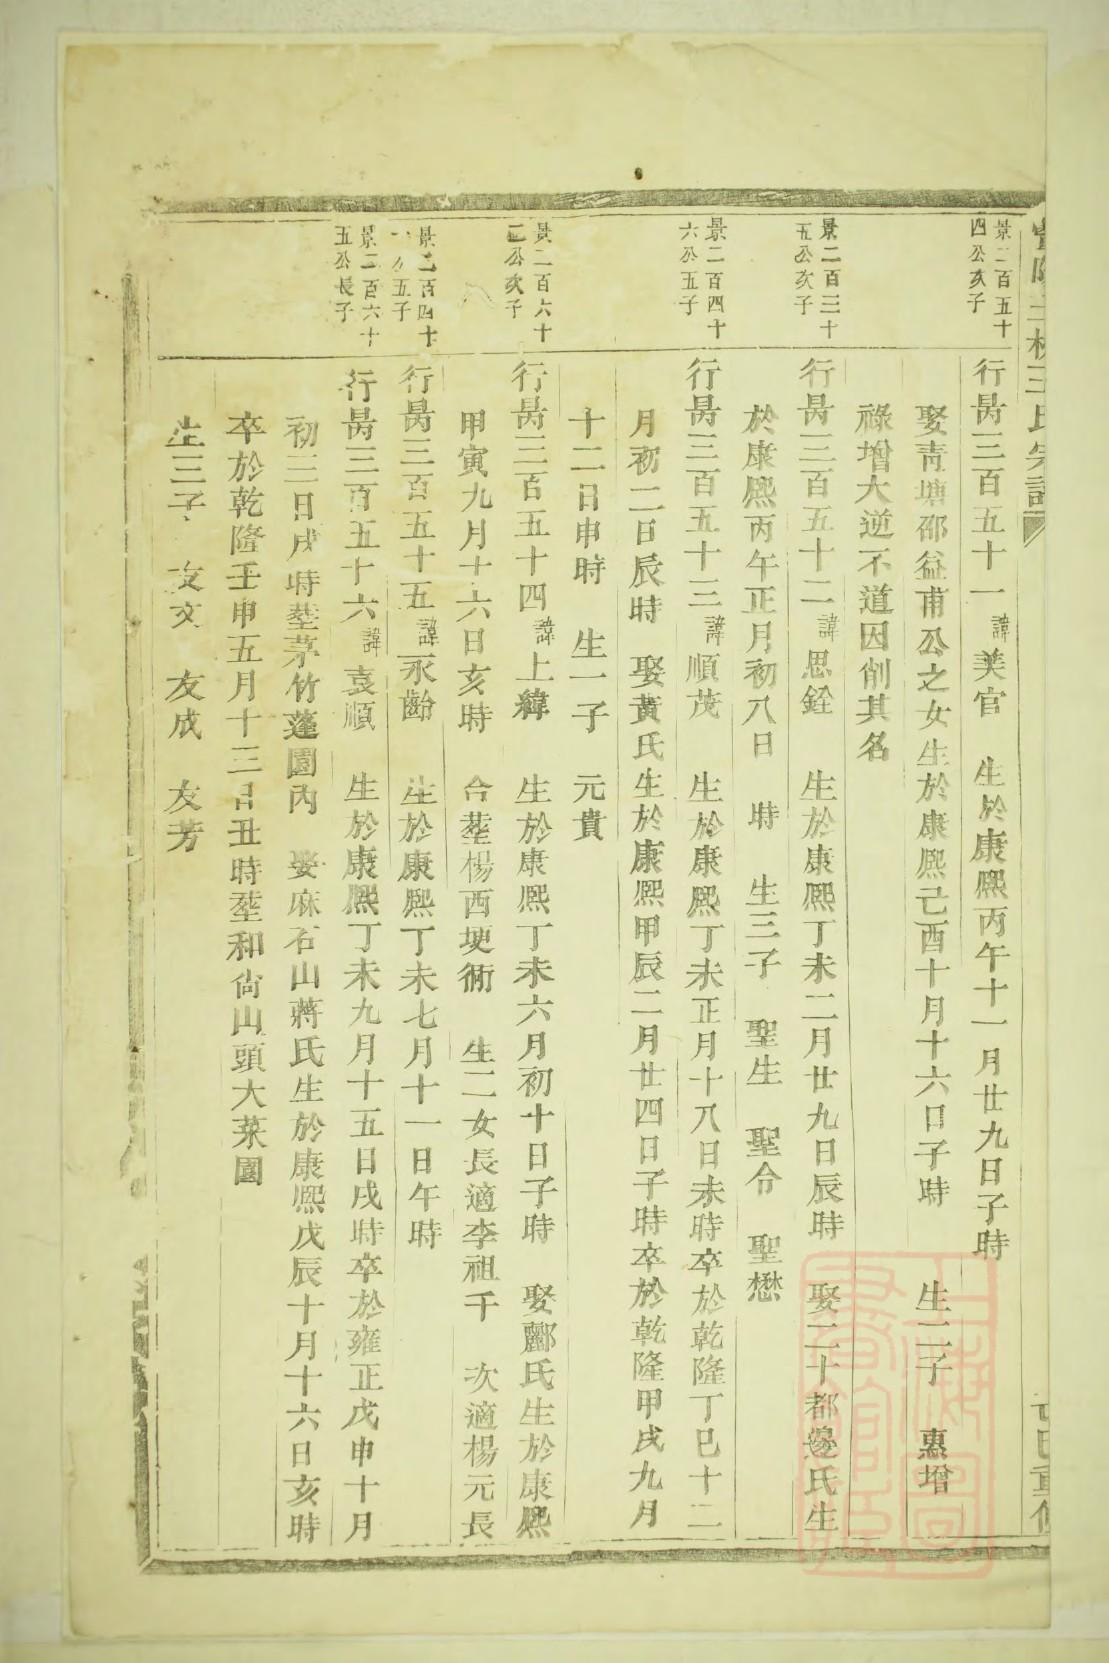 王氏宗譜
景二百五十
四公次子
行昺三百五十一諱美官 生於康熙丙午十一月廿九日子時
娶靑塘邵益甫公之女生於康熙己酉十月十六日子時 生二子 惠增
祿增大逆不道因削其名
景二百三十
五公次子
行昺三百五十二諱思銓 生於康熙丁未二月廿九日辰時 娶二十都邊氏生
於康熙丙午正月初八日 時 生三子 聖生 聖令 聖懋
景二百四十
六公五子
行昺三百五十三諱順茂 生於康熙丁未正月十八日未時卒於乾隆丁巳十二
月初二日辰時 娶黃氏生於康熙甲辰二月廿四日子時卒於乾隆甲戌九月
十二日申時 生一子 元貴
景二百六十
公次子
行昺三百五十四諱上緯 生於康熙丁未六月初十日子時 娶酈氏生於康熙
甲寅九月十六日亥時 合塟楊西埂衕 生二女長適李祖千 次適楊元長
景二百四十
公五子
行昺三百五十五諱永齡 生於康熙丁未七月十一日午時
景二百六十
五公長子
行昺三百五十六諱袁順 生於康熙丁未九月十五日戌時卒於雍正戊申十月
初三日戌時塟茅竹蓬園內 娶麻石山蔣氏生於康熙戊辰十月十六日亥時
卒於乾隆壬申五月十三日丑時塟和尙山頭大菜園
生三子 友文 友成 友芳
重修